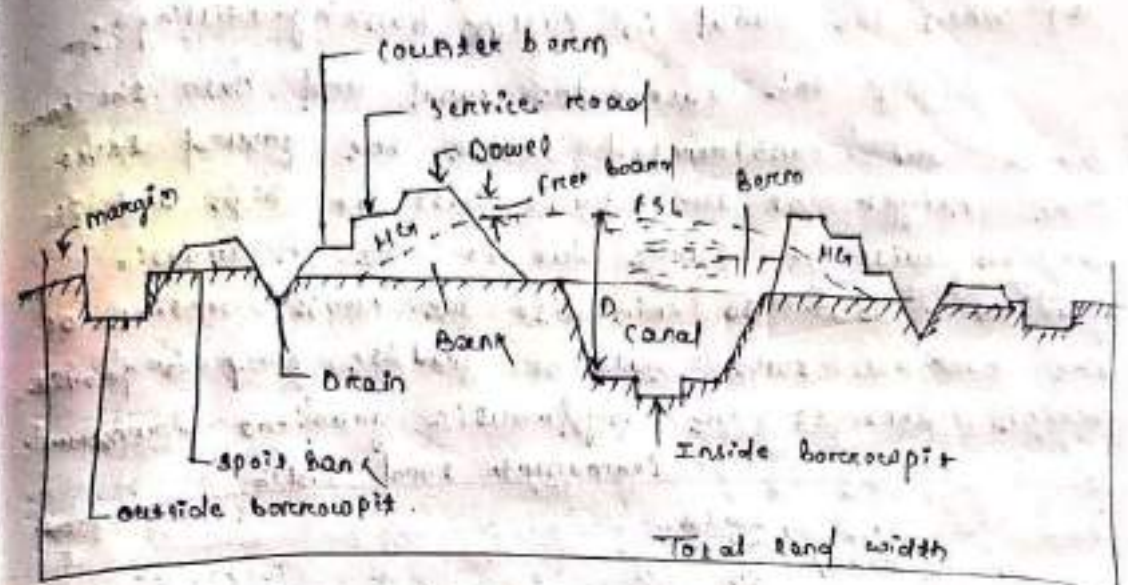 counter berm
service road
Dowel
Free board
Berm
margin
F.S.L
HG
HG
D
canal
Bank
Drain
Inside borrowpit
spoil bank
outside borrowpit.
Total land width